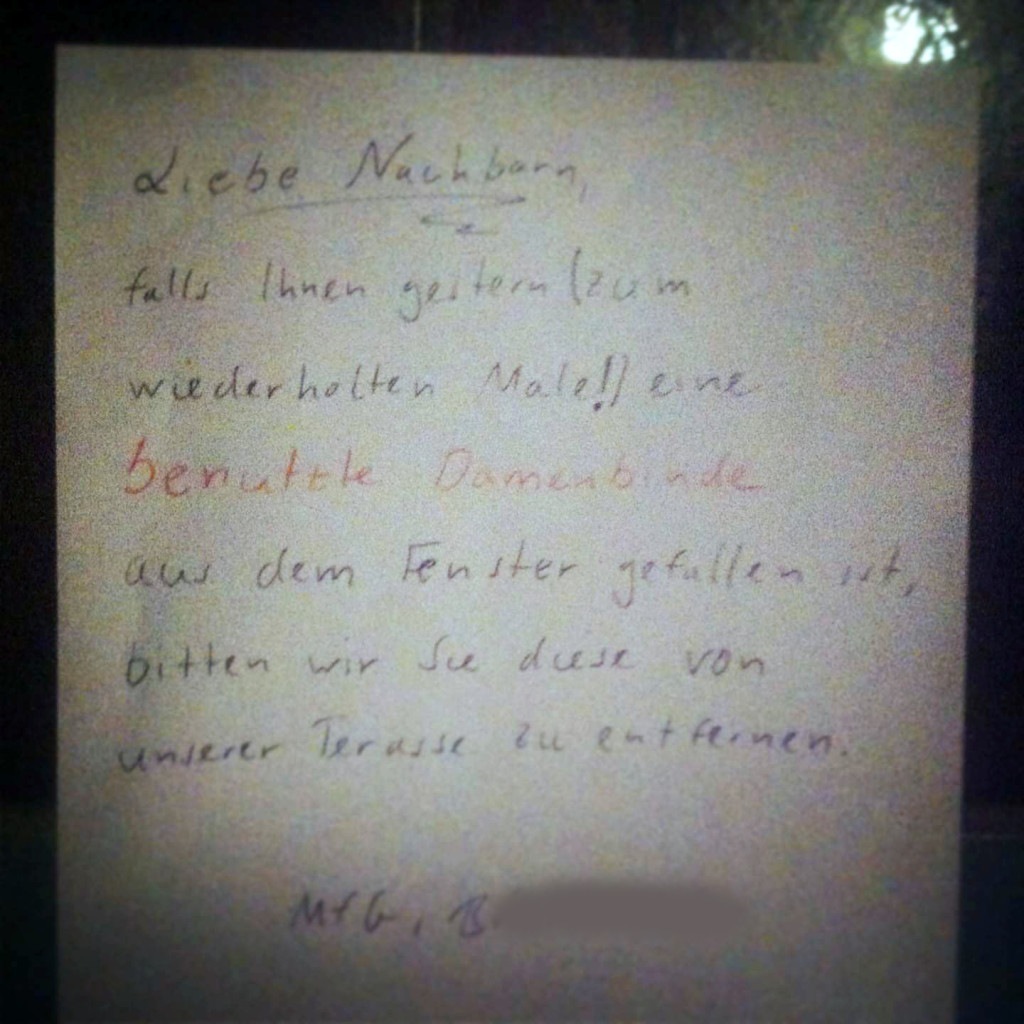 Liebe Nachbarn,
falls Ihnen gestern (zum
wiederholten Male!) eine
benutzte Damenbinde
aus dem Fenster gefallen ist,
bitten wir Sie diese von
unserer Terasse zu entfernen.
MfG, B